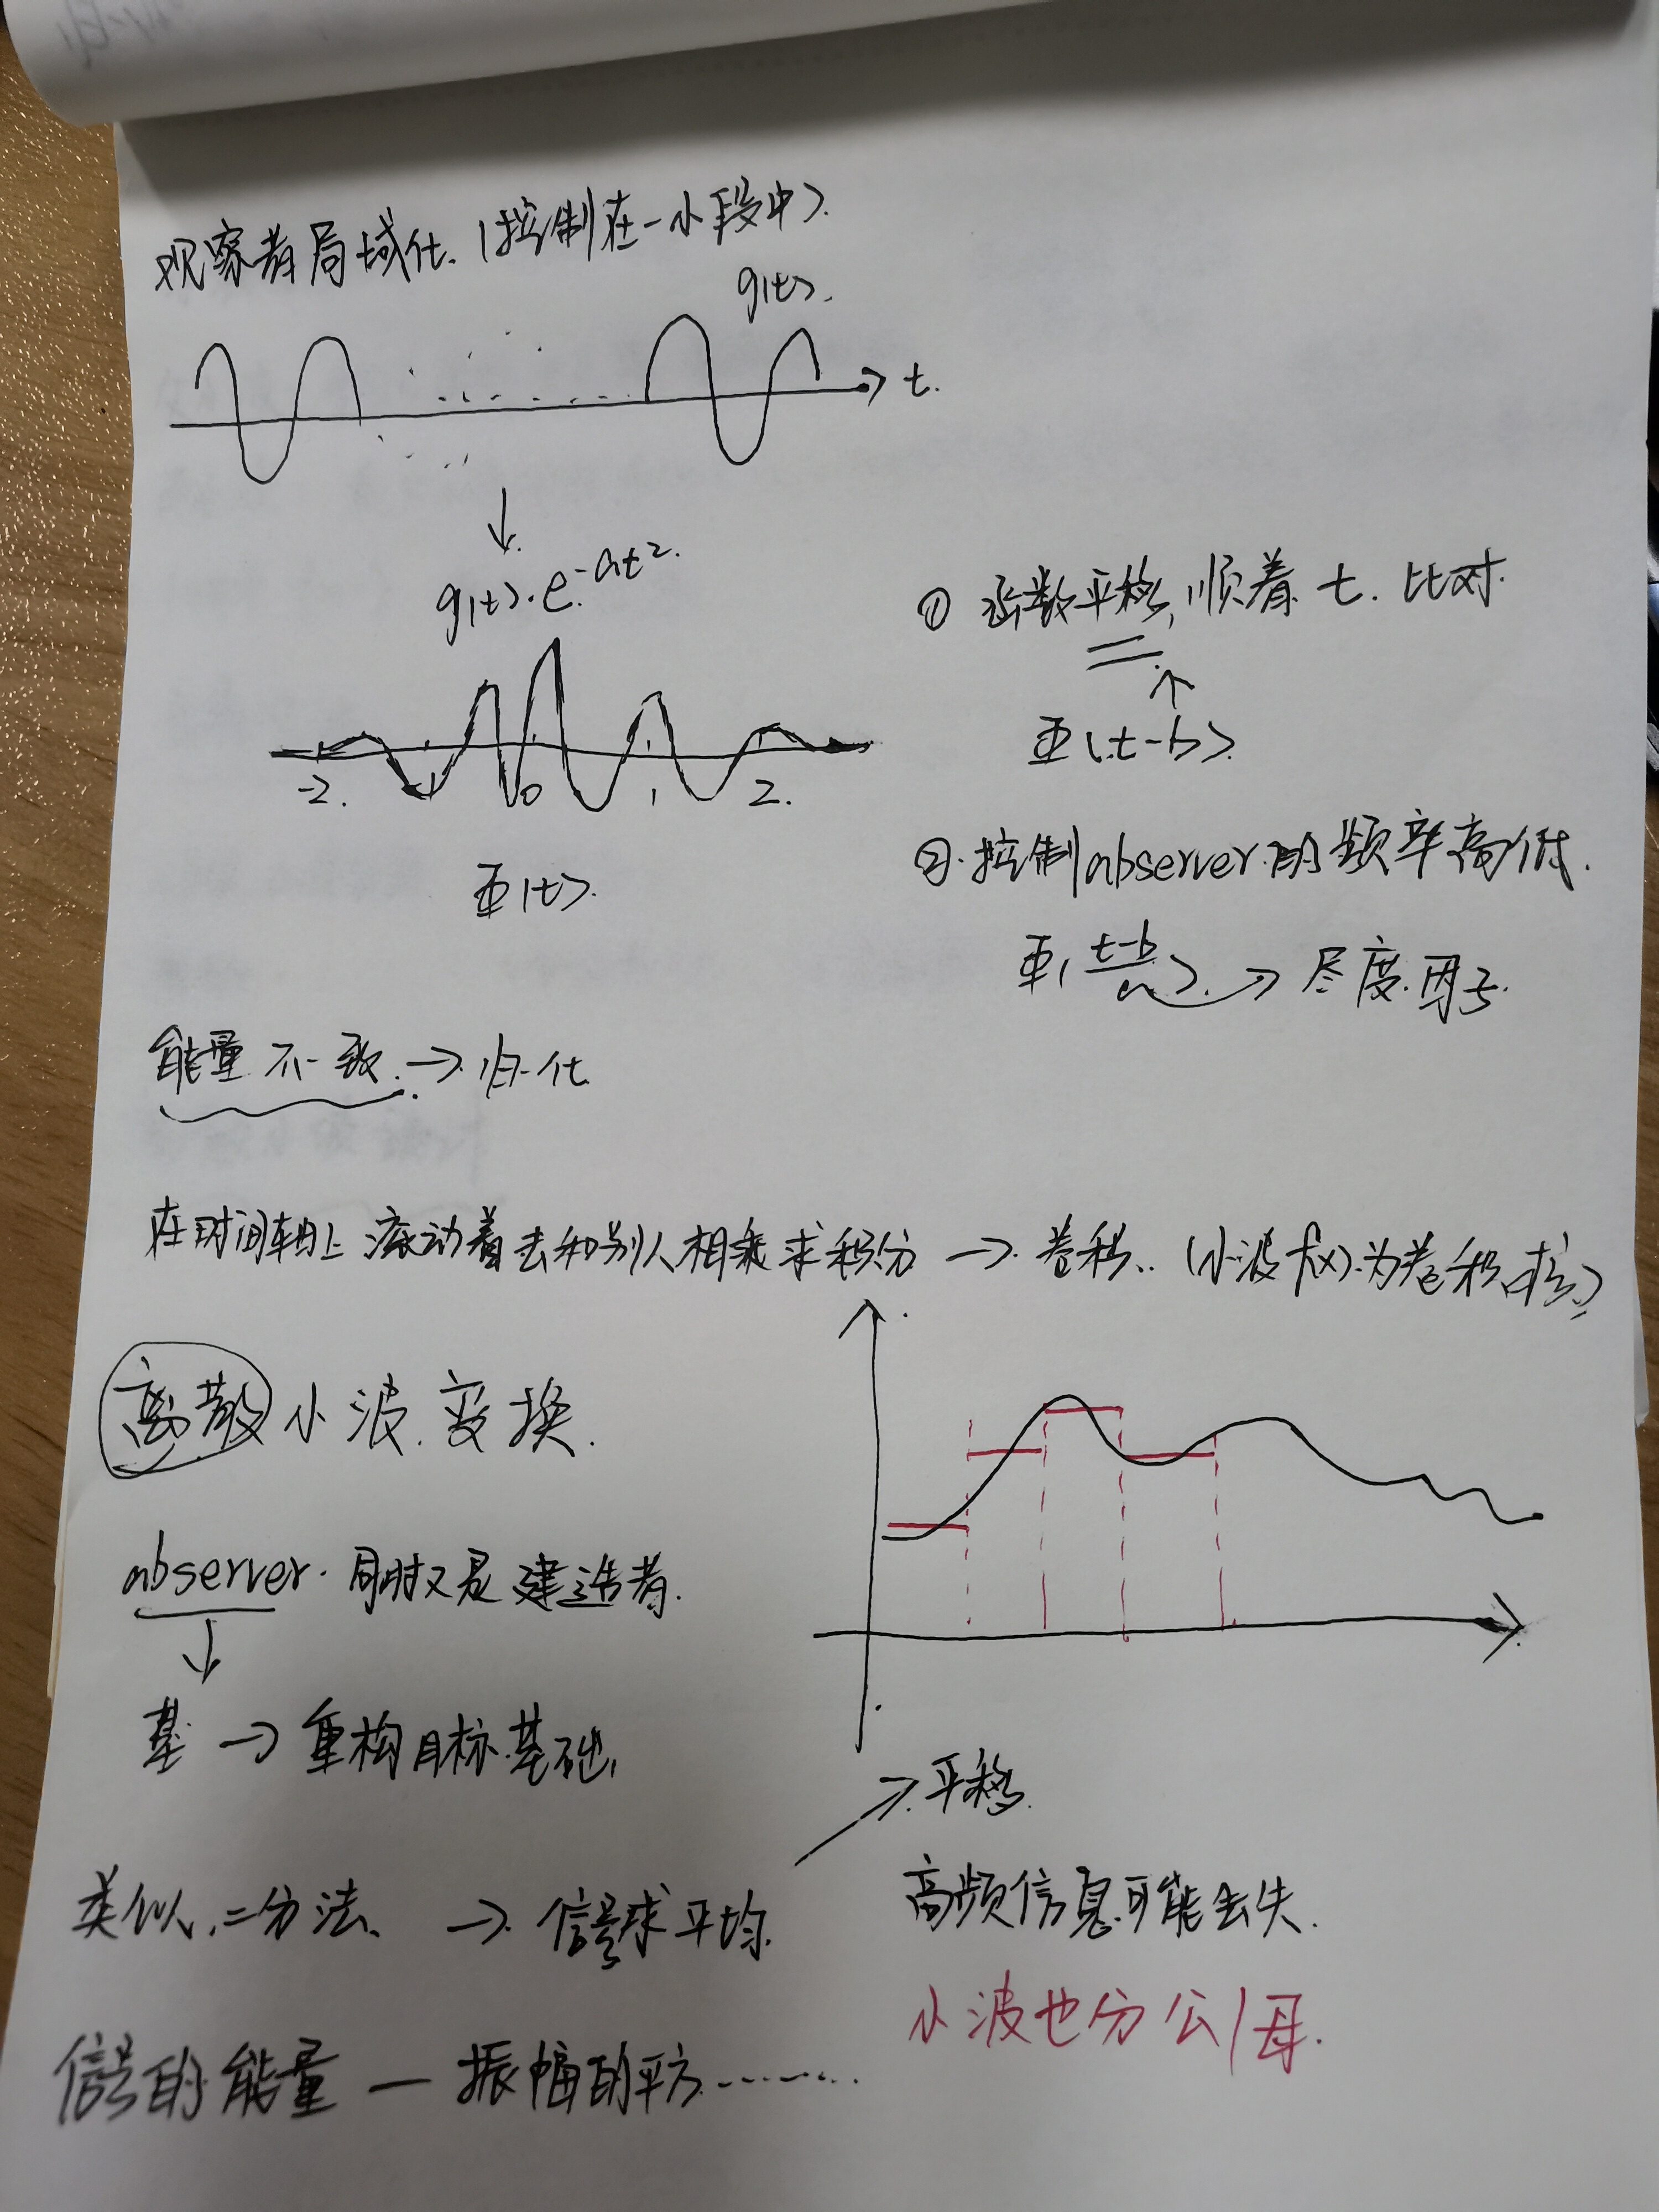 观察者局域化.(控制在一小段中).
g(t).
t.
g(t)·e^{-at²}.
-2. -1 0 1 2.
Ψ(t).
① 函数平移,顺着 t. 比对
Ψ(t-b).
②.控制observer的频率高低.
Ψ(\frac{t-b}{a}). → 尺度.因子.
能量不一致.→归一化
在时间轴上滚动着去和别人相乘求积分 → 卷积..(小波f(x)为卷积核)
离散小波变换.
observer.同时又是建造者.
↓
基 → 重构目标.基础,
→平移.
类似.二分法、→ 信号求平均.
高频信息可能丢失.
小波也分公/母.
信号的能量 — 振幅的平方........